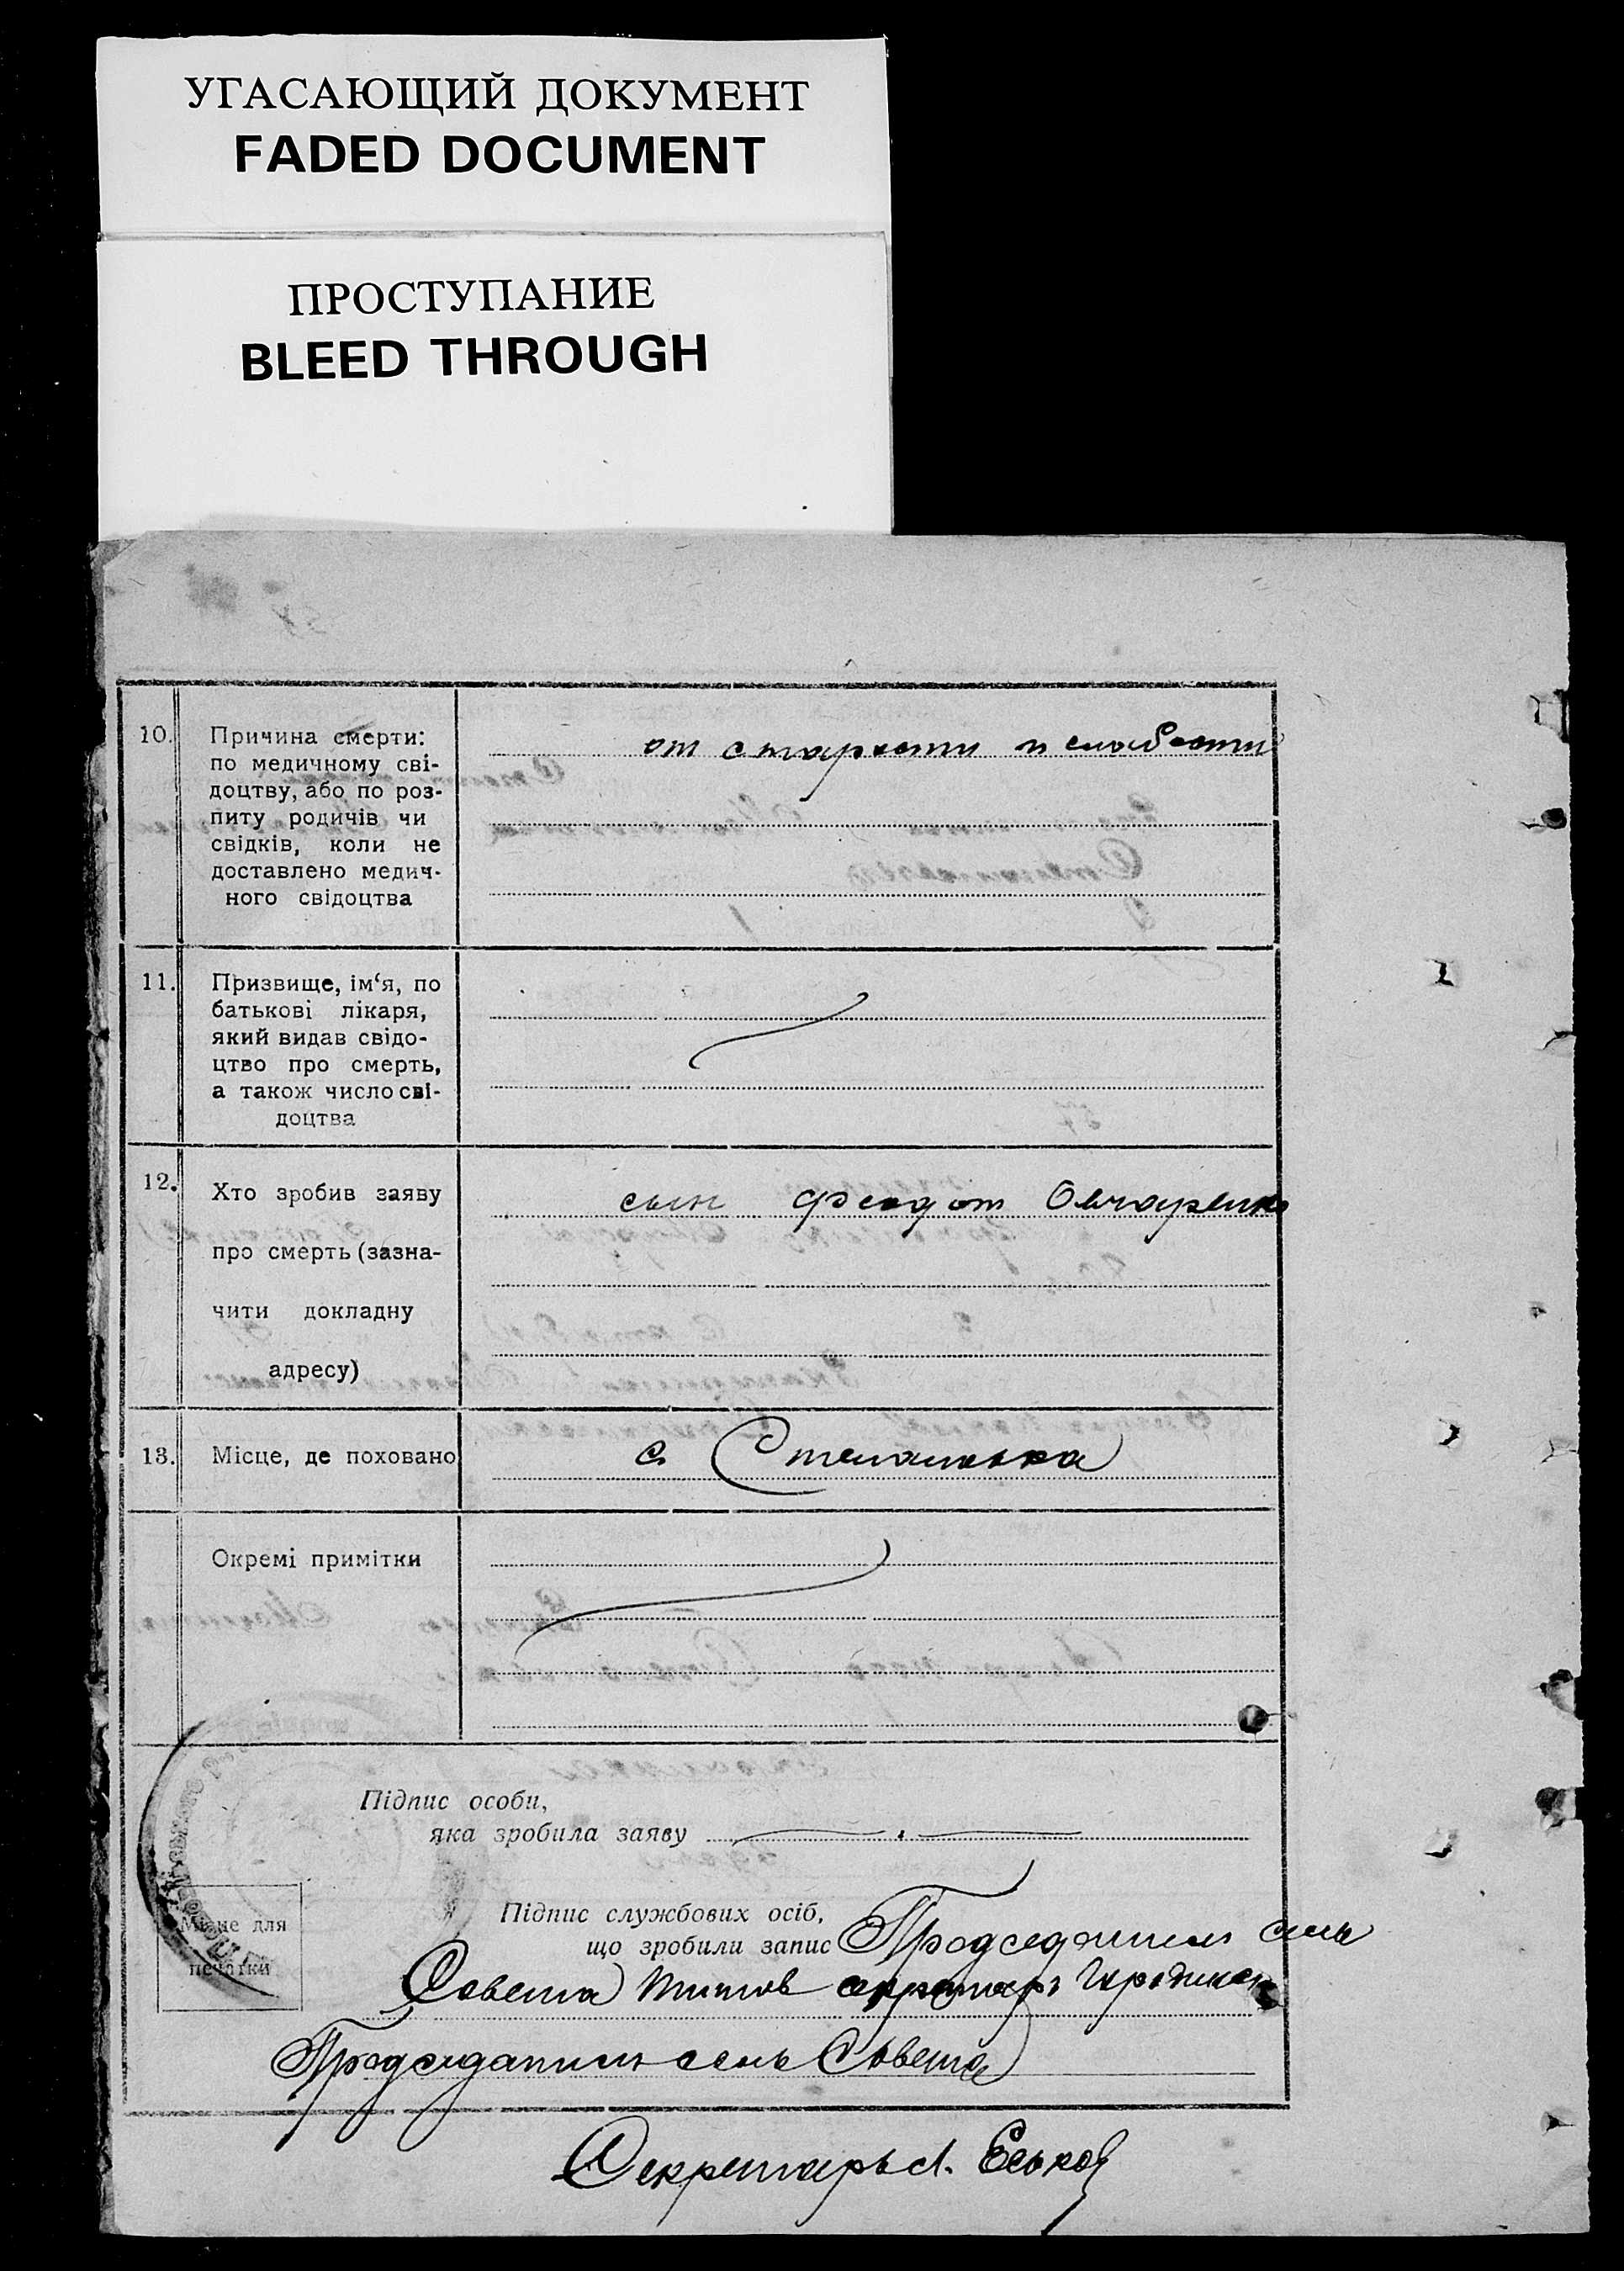 УГАСАЮЩИЙ ДОКУМЕНТ
FADED DOCUMENT
ПРОСТУПАНИЕ
BLEED THROUGH
10. Причина смерти: от старости и слабости
по медичному сві-
доцтву, або по роз-
питу родичів чи
свідків, коли не
доставлено медич-
ного свідоцтва
11. Призвище, ім‘я, по
батькові лікаря,
який видав свідо-
цтво про смерть,
а також число сві-
доцтва
12. Хто зробив заяву сын Федот Овчаренко
про смерть (зазна-
чити докладну
адресу)
13. Місце, де поховано с. Степановка
Окремі примітки
Підпис особи,
яка зробила заяву
Підпис службових осіб,
що зробили запис Председатель сель
Місце для
печатки
Совета Титов секретарь
Председатель сель Совета
Секретарь